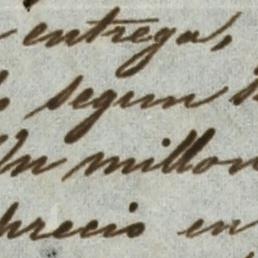 entrega,
segun
Un millon
precio en